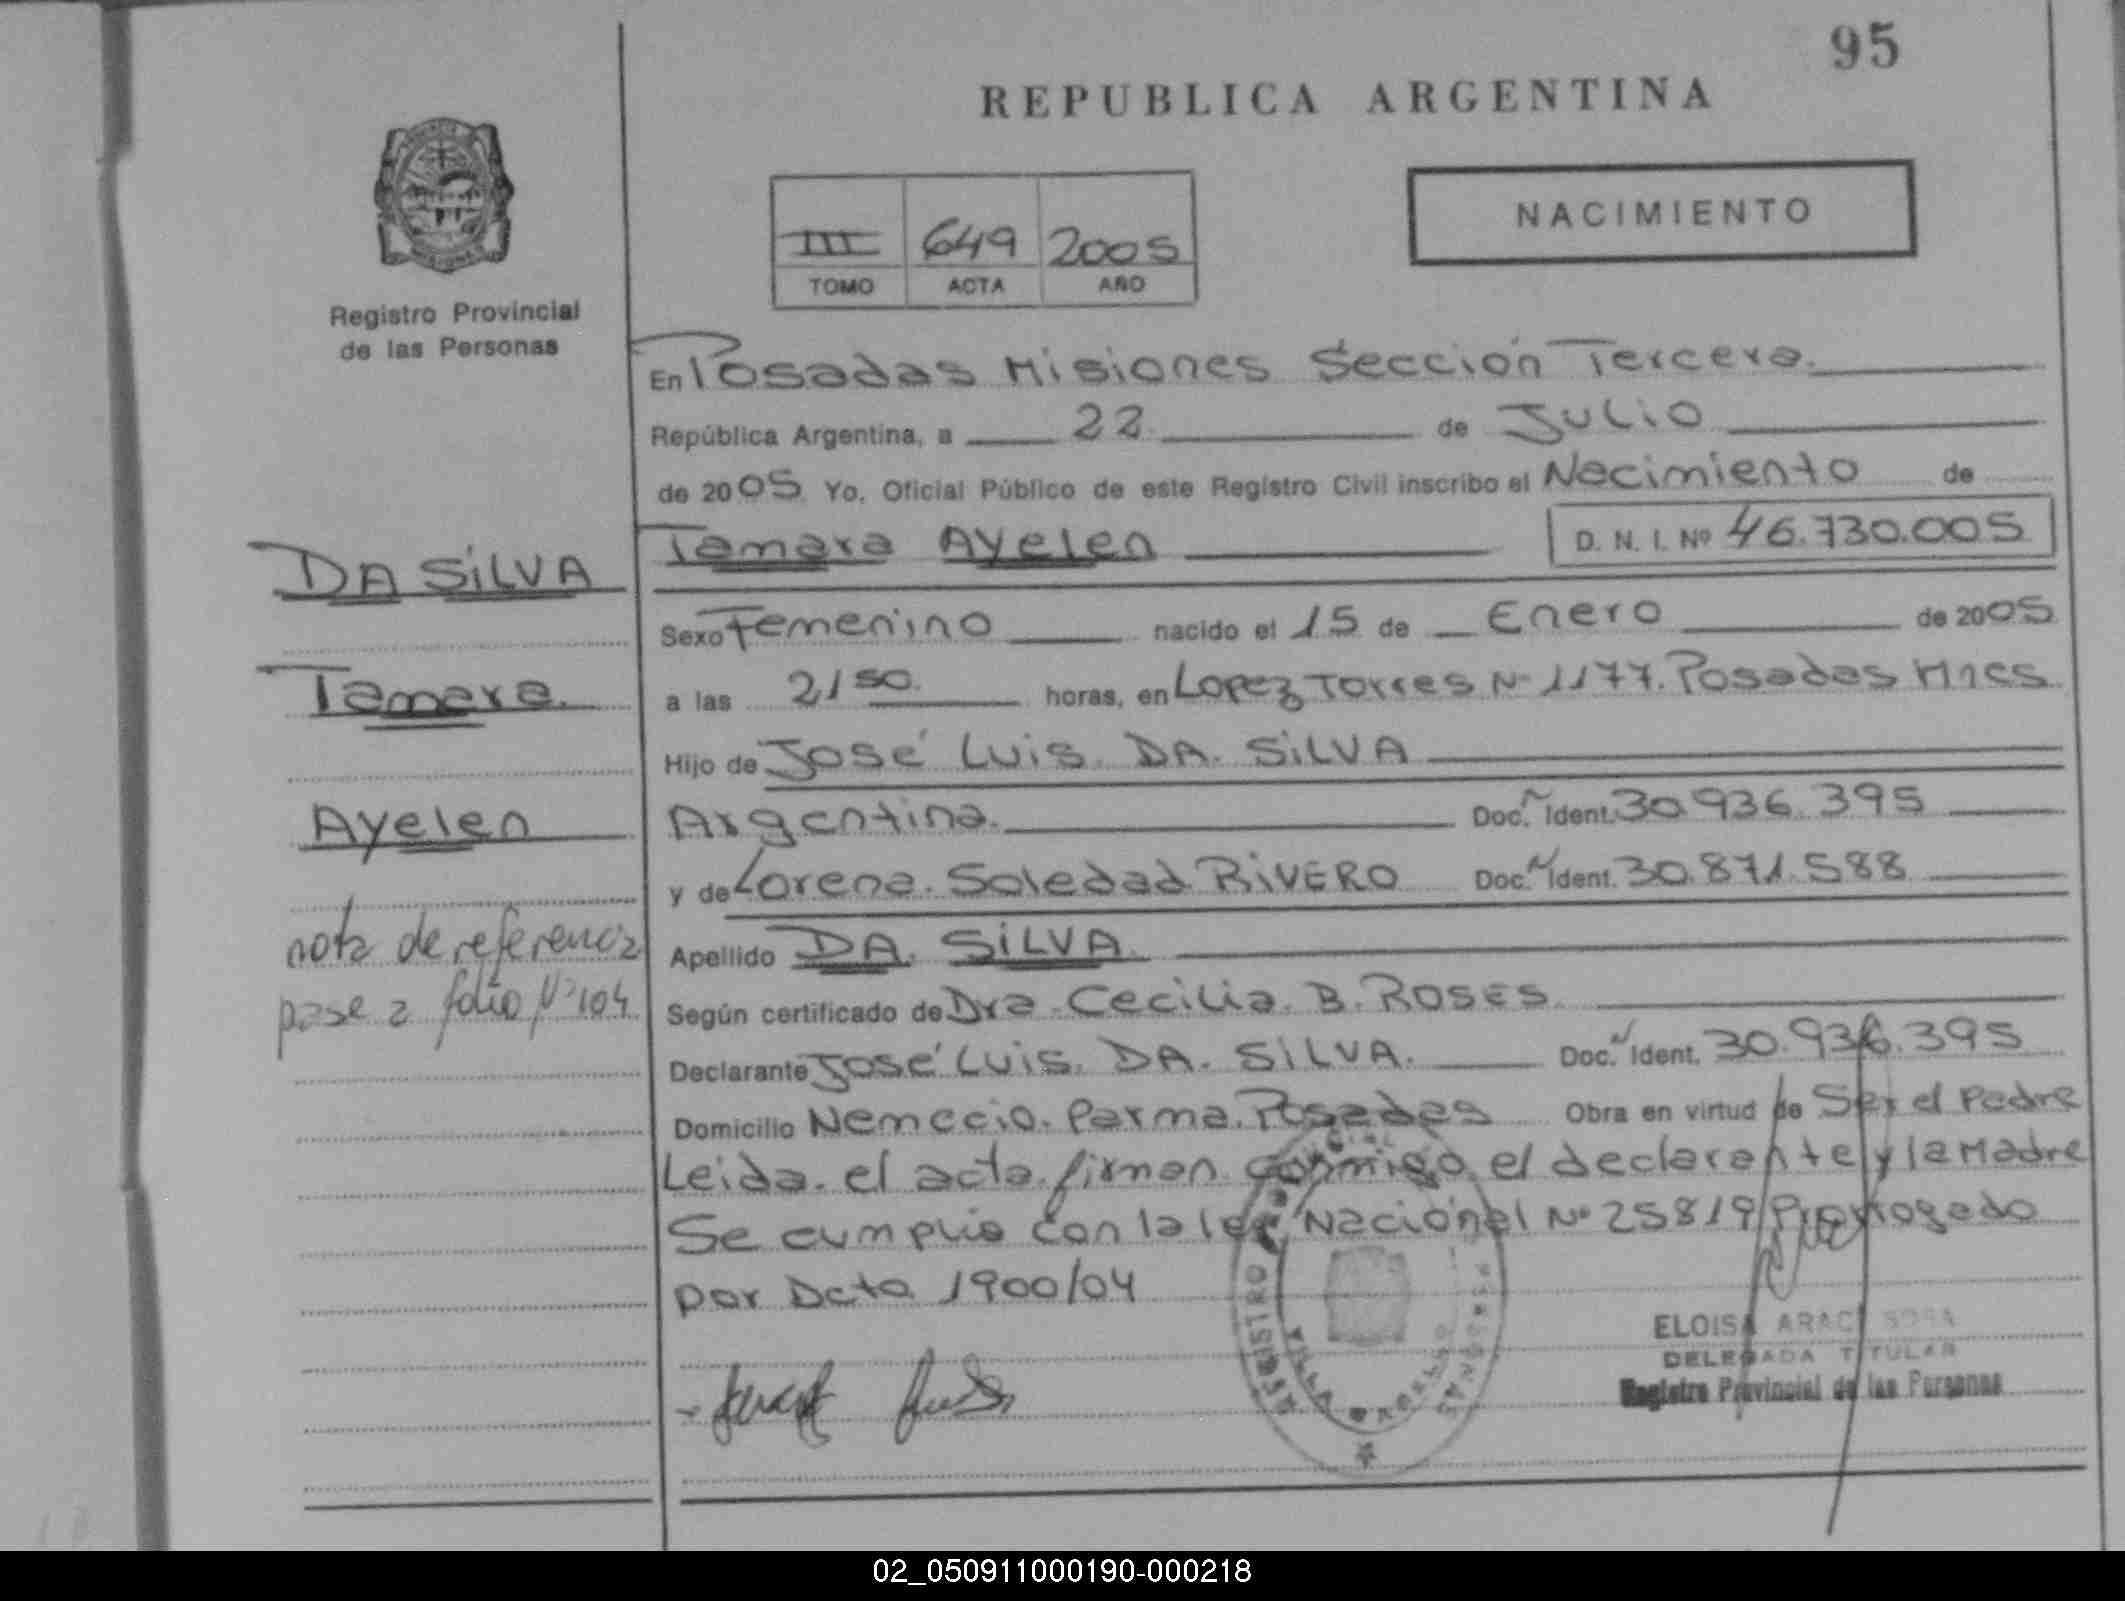 95
REPUBLICA ARGENTINA
NACIMIENTO
III 649 2005
TOMO ACTA AÑO
Registro Provincial
de las Personas
En Posadas Misiones Sección Tercera.
República Argentina, a 22 de Julio
de 2005 Yo, Oficial Público de este Registro Civil inscribo el Nacimiento de
Tamara Ayelen D. N. I. Nº 46.730.005
DA SiLVA
Tamara
Ayelen
nota de referencia
pase a folio Nº 104
Sexo Femenino nacido el 15 de Enero de 2005
a las 21 50 horas, en Lopez Torres Nº 1177. Posadas Mnes
Hijo de José Luis. DA. SiLVA
Argentina. Doc. Ident. 30.936.395
y de Lorena. Soledad RiVERO Doc. Ident. 30.871.588
Apellido DA. SiLVA.
Según certificado de Dra. Cecilia. B. ROSES
Declarante José Luis. DA. SiLVA. Doc. Ident. 30.936.395
Domicilio Nemecio. Parma. Posadas Obra en virtud de Ser el Padre
Leida. el acta. firman conmigo el declarante y la Madre
Se cumplio con la ley Nacional Nº 25819 Prorrogado
por Dcto 1900/04
REGISTRO PERSONAS
VILLA
ELOISA SOSA
DELEGADA TITULAR
Registro Provincial de las Personas
02_050911000190-000218